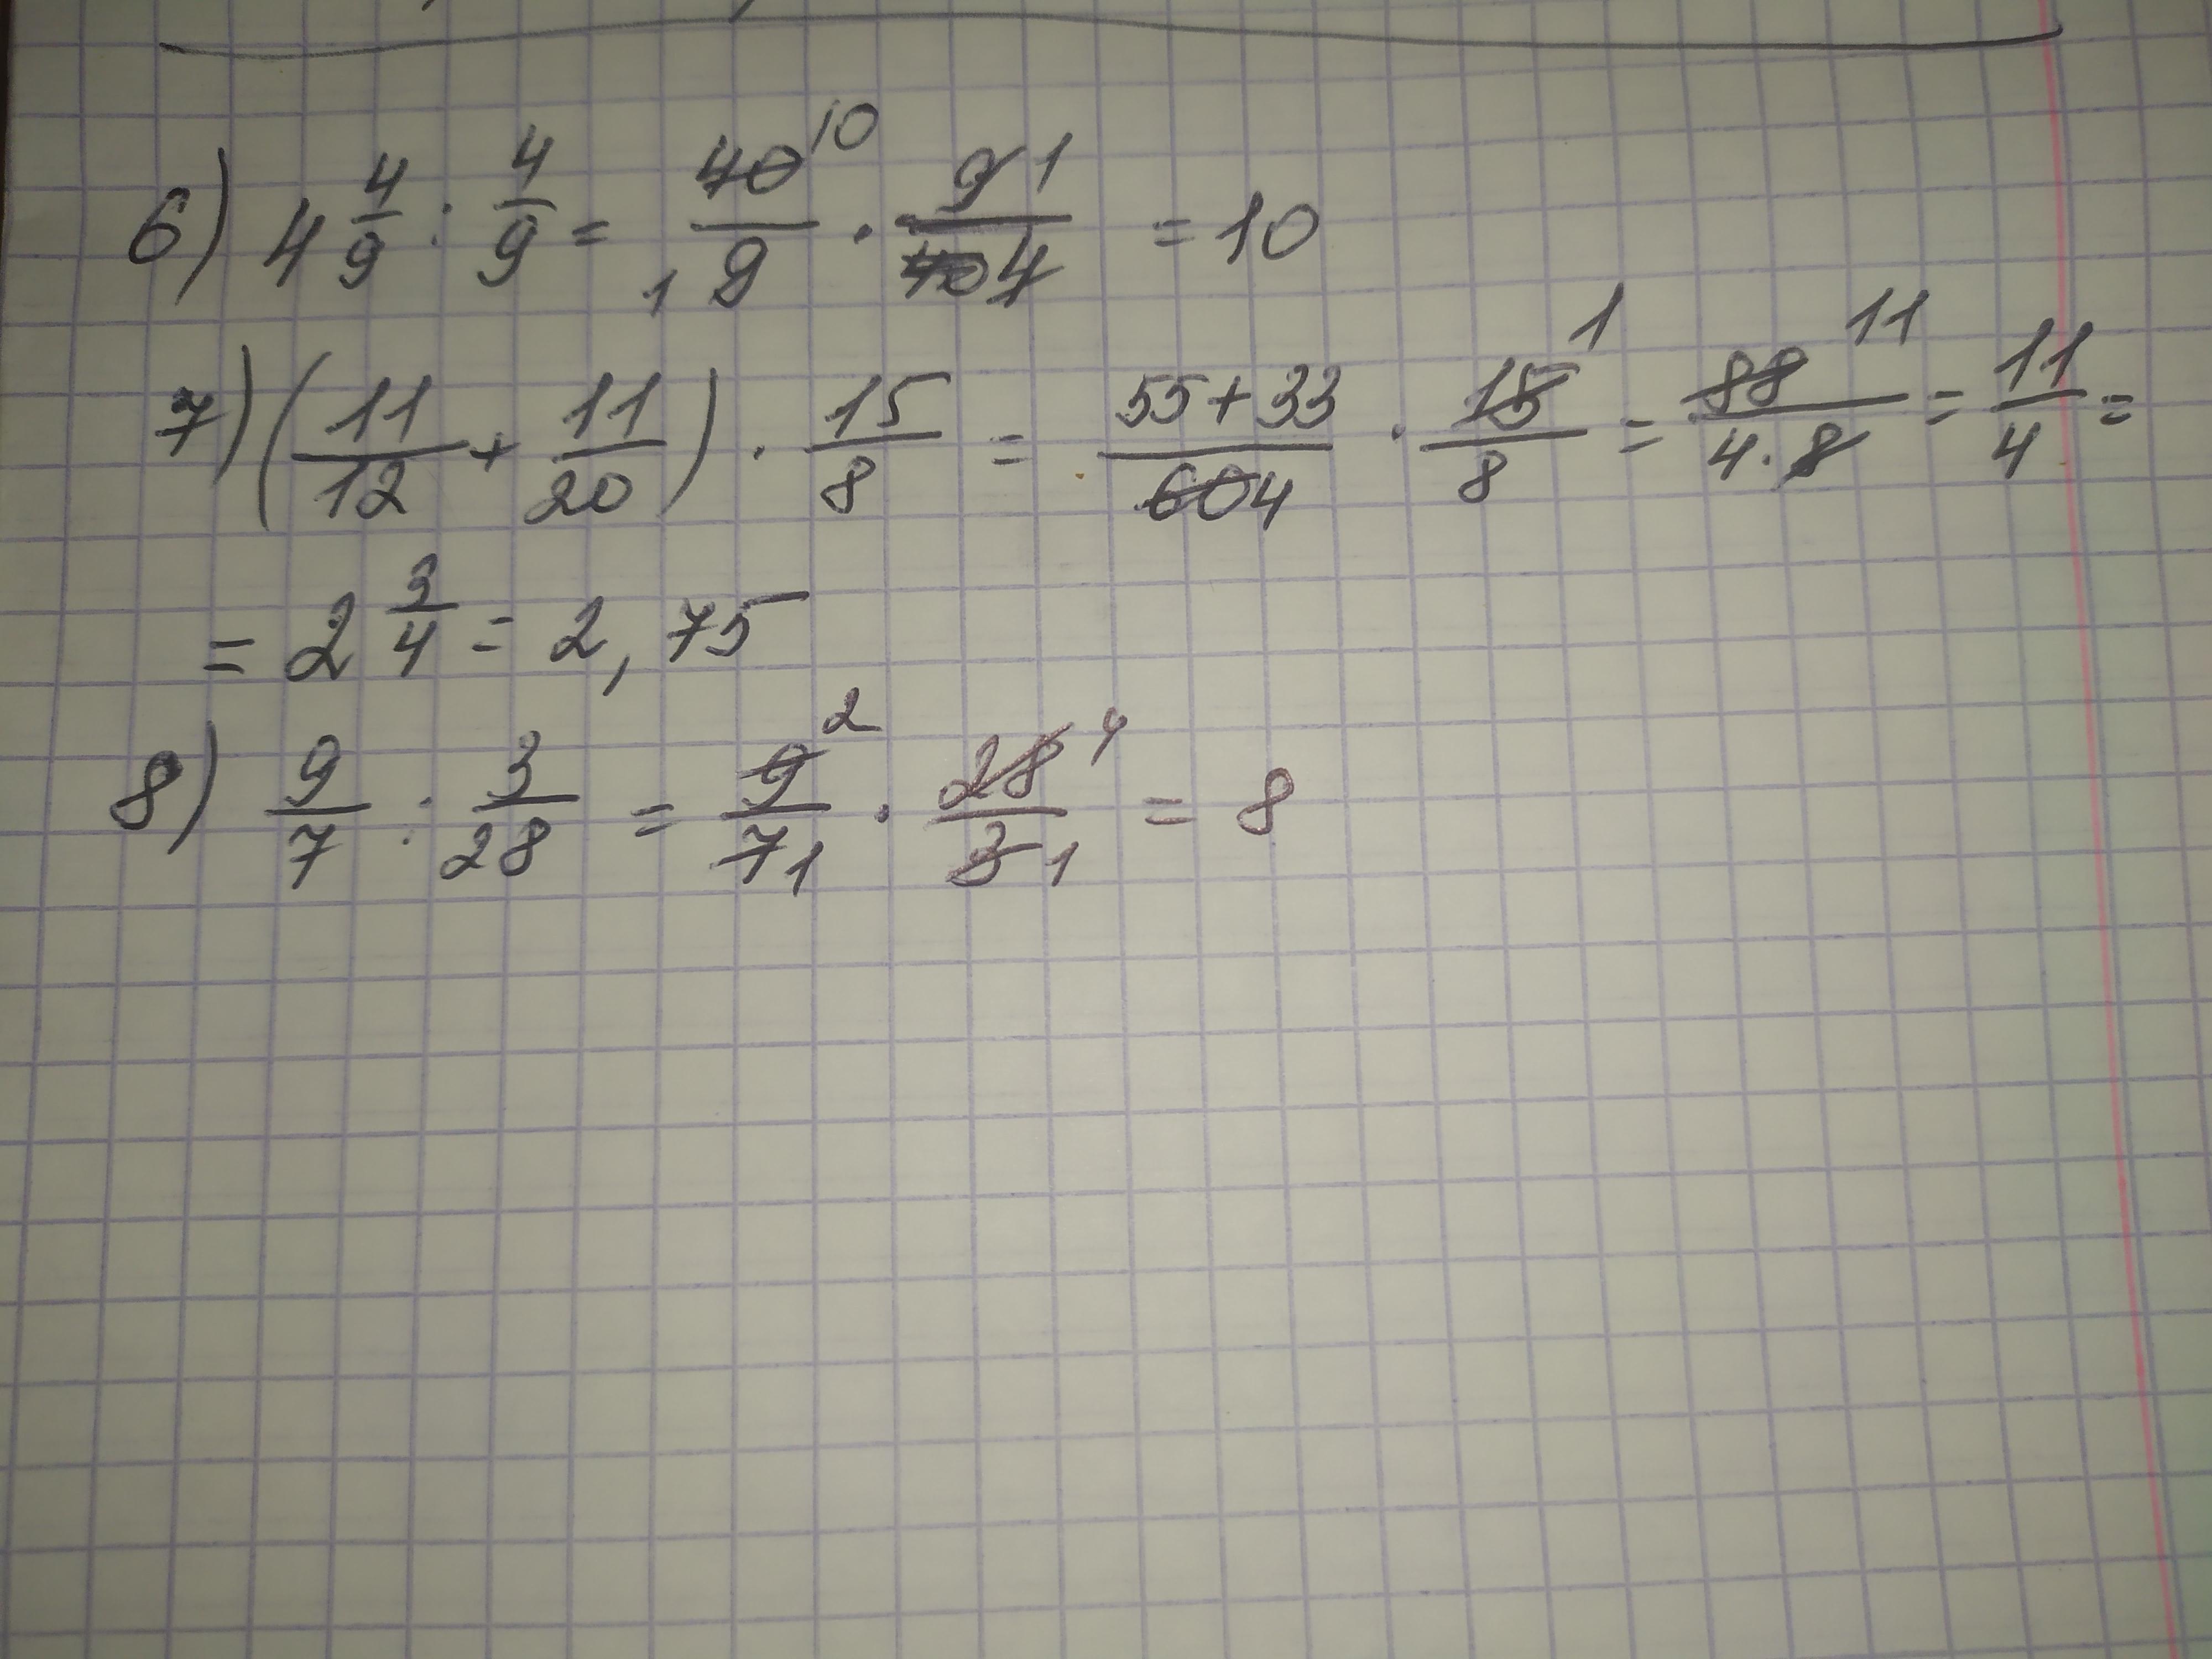 6) 4 4/9 : 4/9 = 40 10/1 9 · 9 1/40 4 = 10
7) (11/12 + 11/20) · 15/8 = 55+33/60 4 · 15 1/8 = 88 11/4·8 = 11/4 =
= 2 3/4 = 2,75
8) 9/7 : 3/28 = 9 2/7 1 · 28 4/3 1 = 8